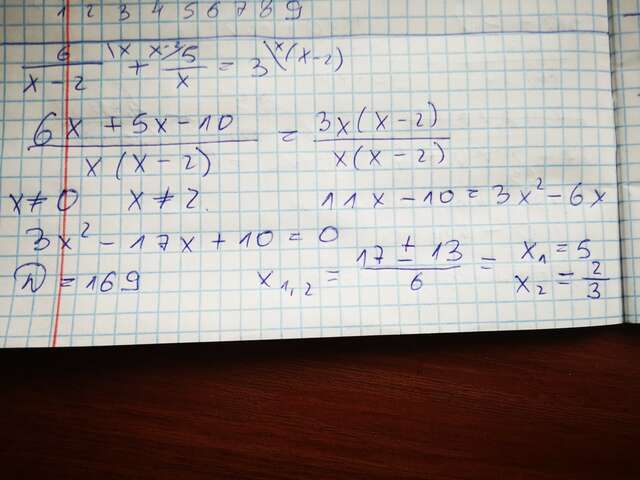 1 2 3 4 5 6 7 8 9
6/(x-2) \x + x-2/ 5/x = 3 \x(x-2)
(6x + 5x - 10)/(x(x-2)) = (3x(x-2))/(x(x-2))
x ≠ 0 x ≠ 2. 11x - 10 = 3x² - 6x
3x² - 17x + 10 = 0
D = 169 x₁,₂ = (17 ± 13)/6 = x₁ = 5
x₂ = 2/3